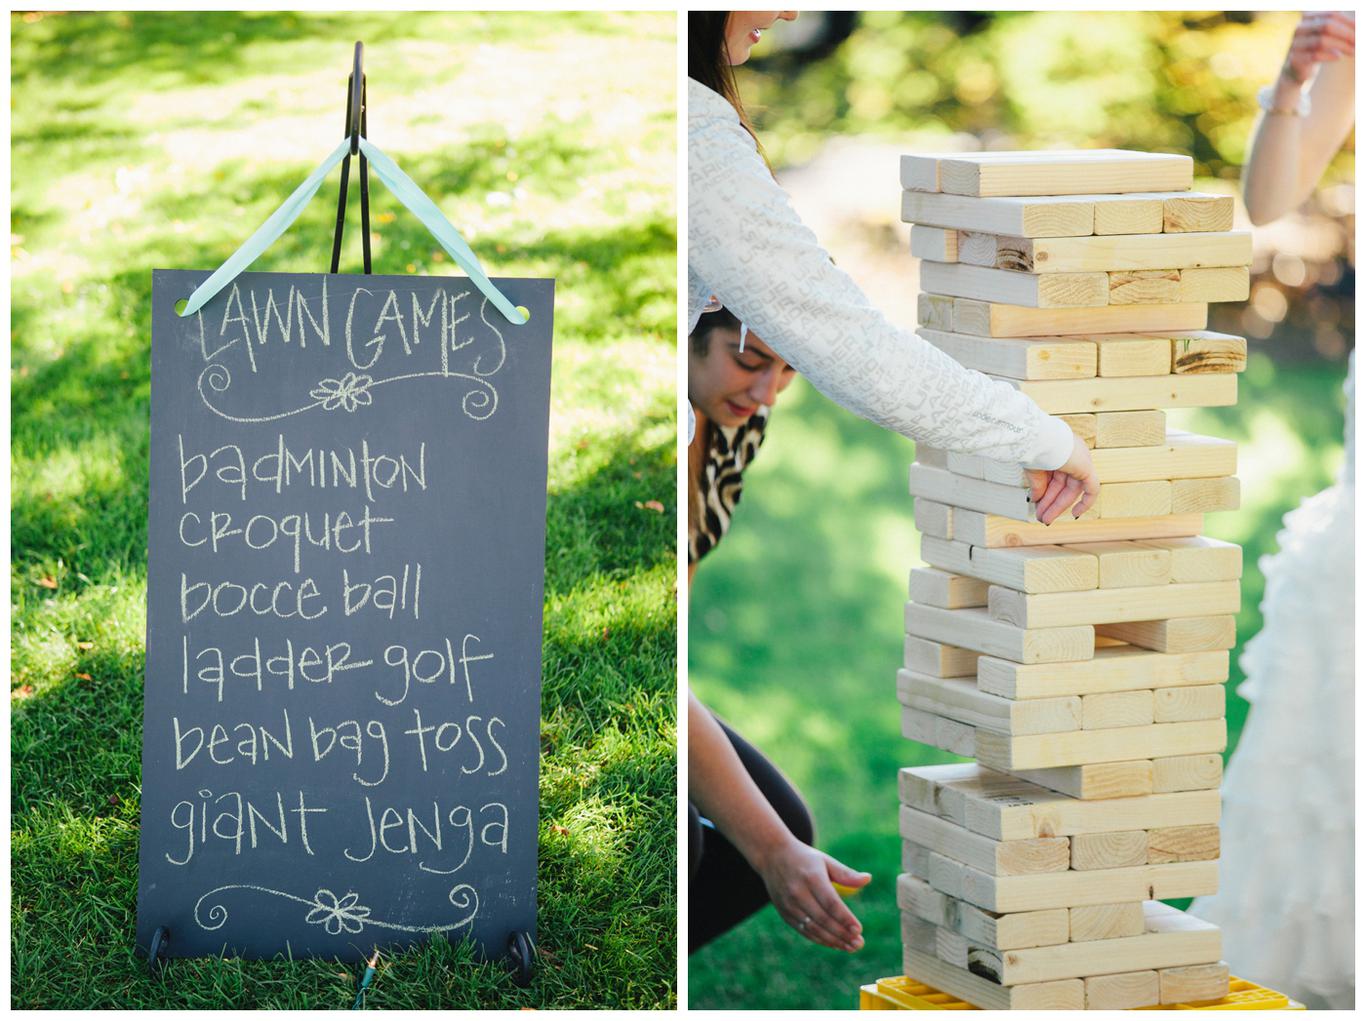 LAWN GAMES
badminton
croquet
bocce ball
ladder golf
bean bag toss
giant jenga